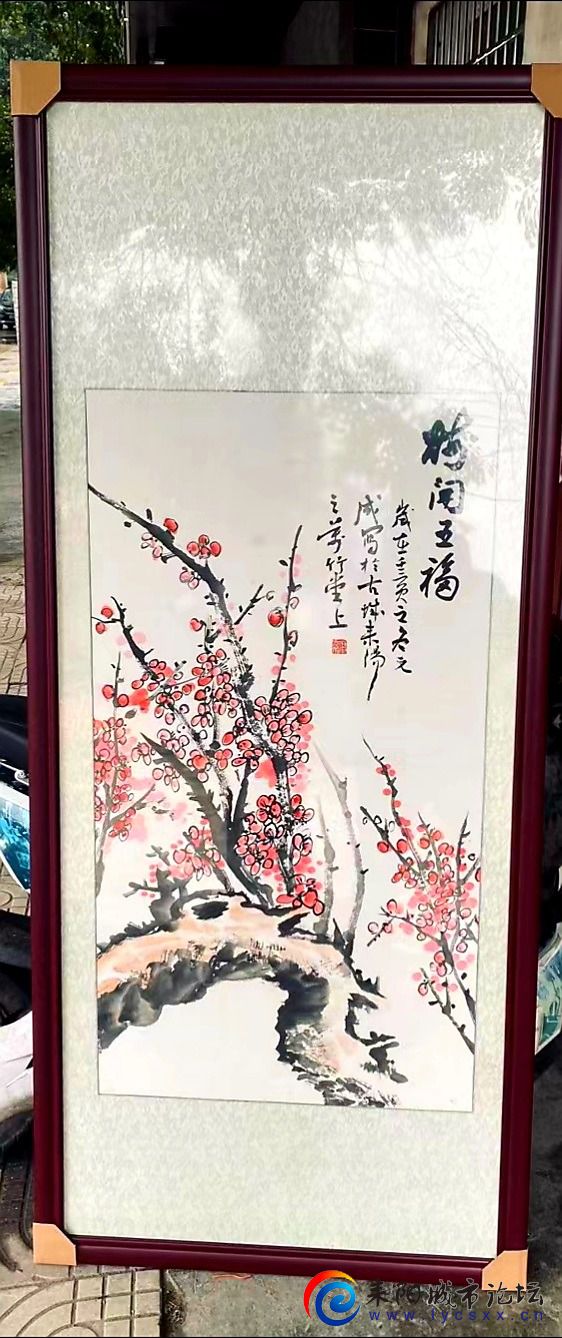 梅开五福
岁在壬寅之冬元
成写於古城耒阳
之万竹堂上
耒阳城市论坛
www.lycsxx.cn